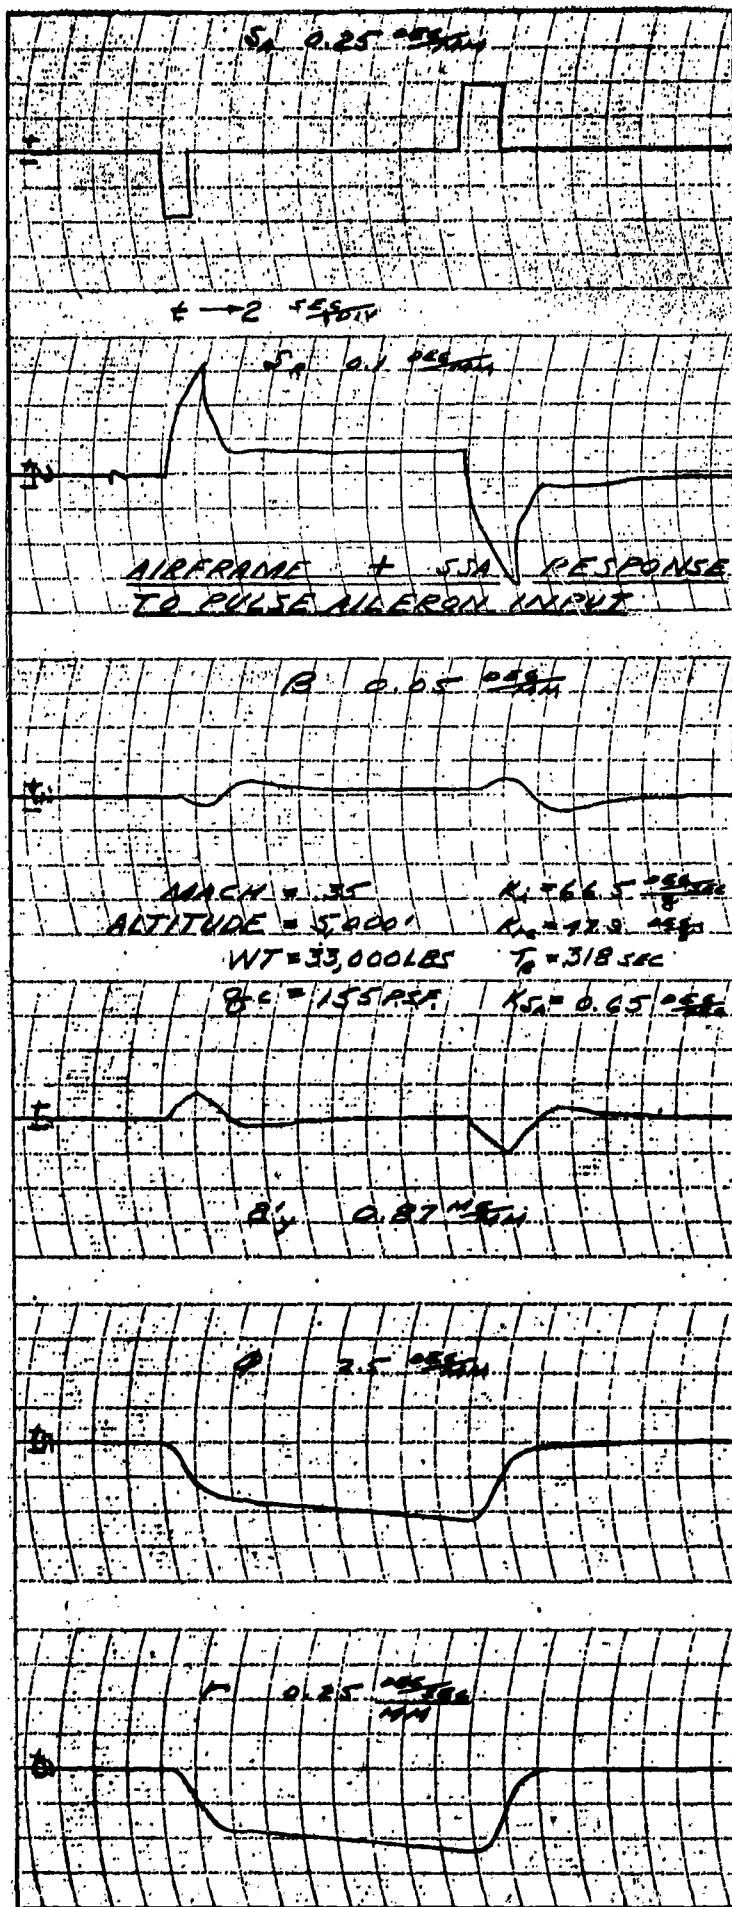 δA 0.25 DEG/MM
t → 2 SEC/DIV
δR 0.1 DEG/MM
AIRFRAME + SSA RESPONSE
TO PULSE AILERON INPUT
β 0.05 DEG/MM
MACH = .35
ALTITUDE = 5,000'
WT = 33,000 LBS
qc = 155 PSF.
DEG/SEC
DEG
.318 SEC
0.65
0.87 MG/MM
φ 2.5 DEG/MM
r 0.25 DEG/SEC
MM